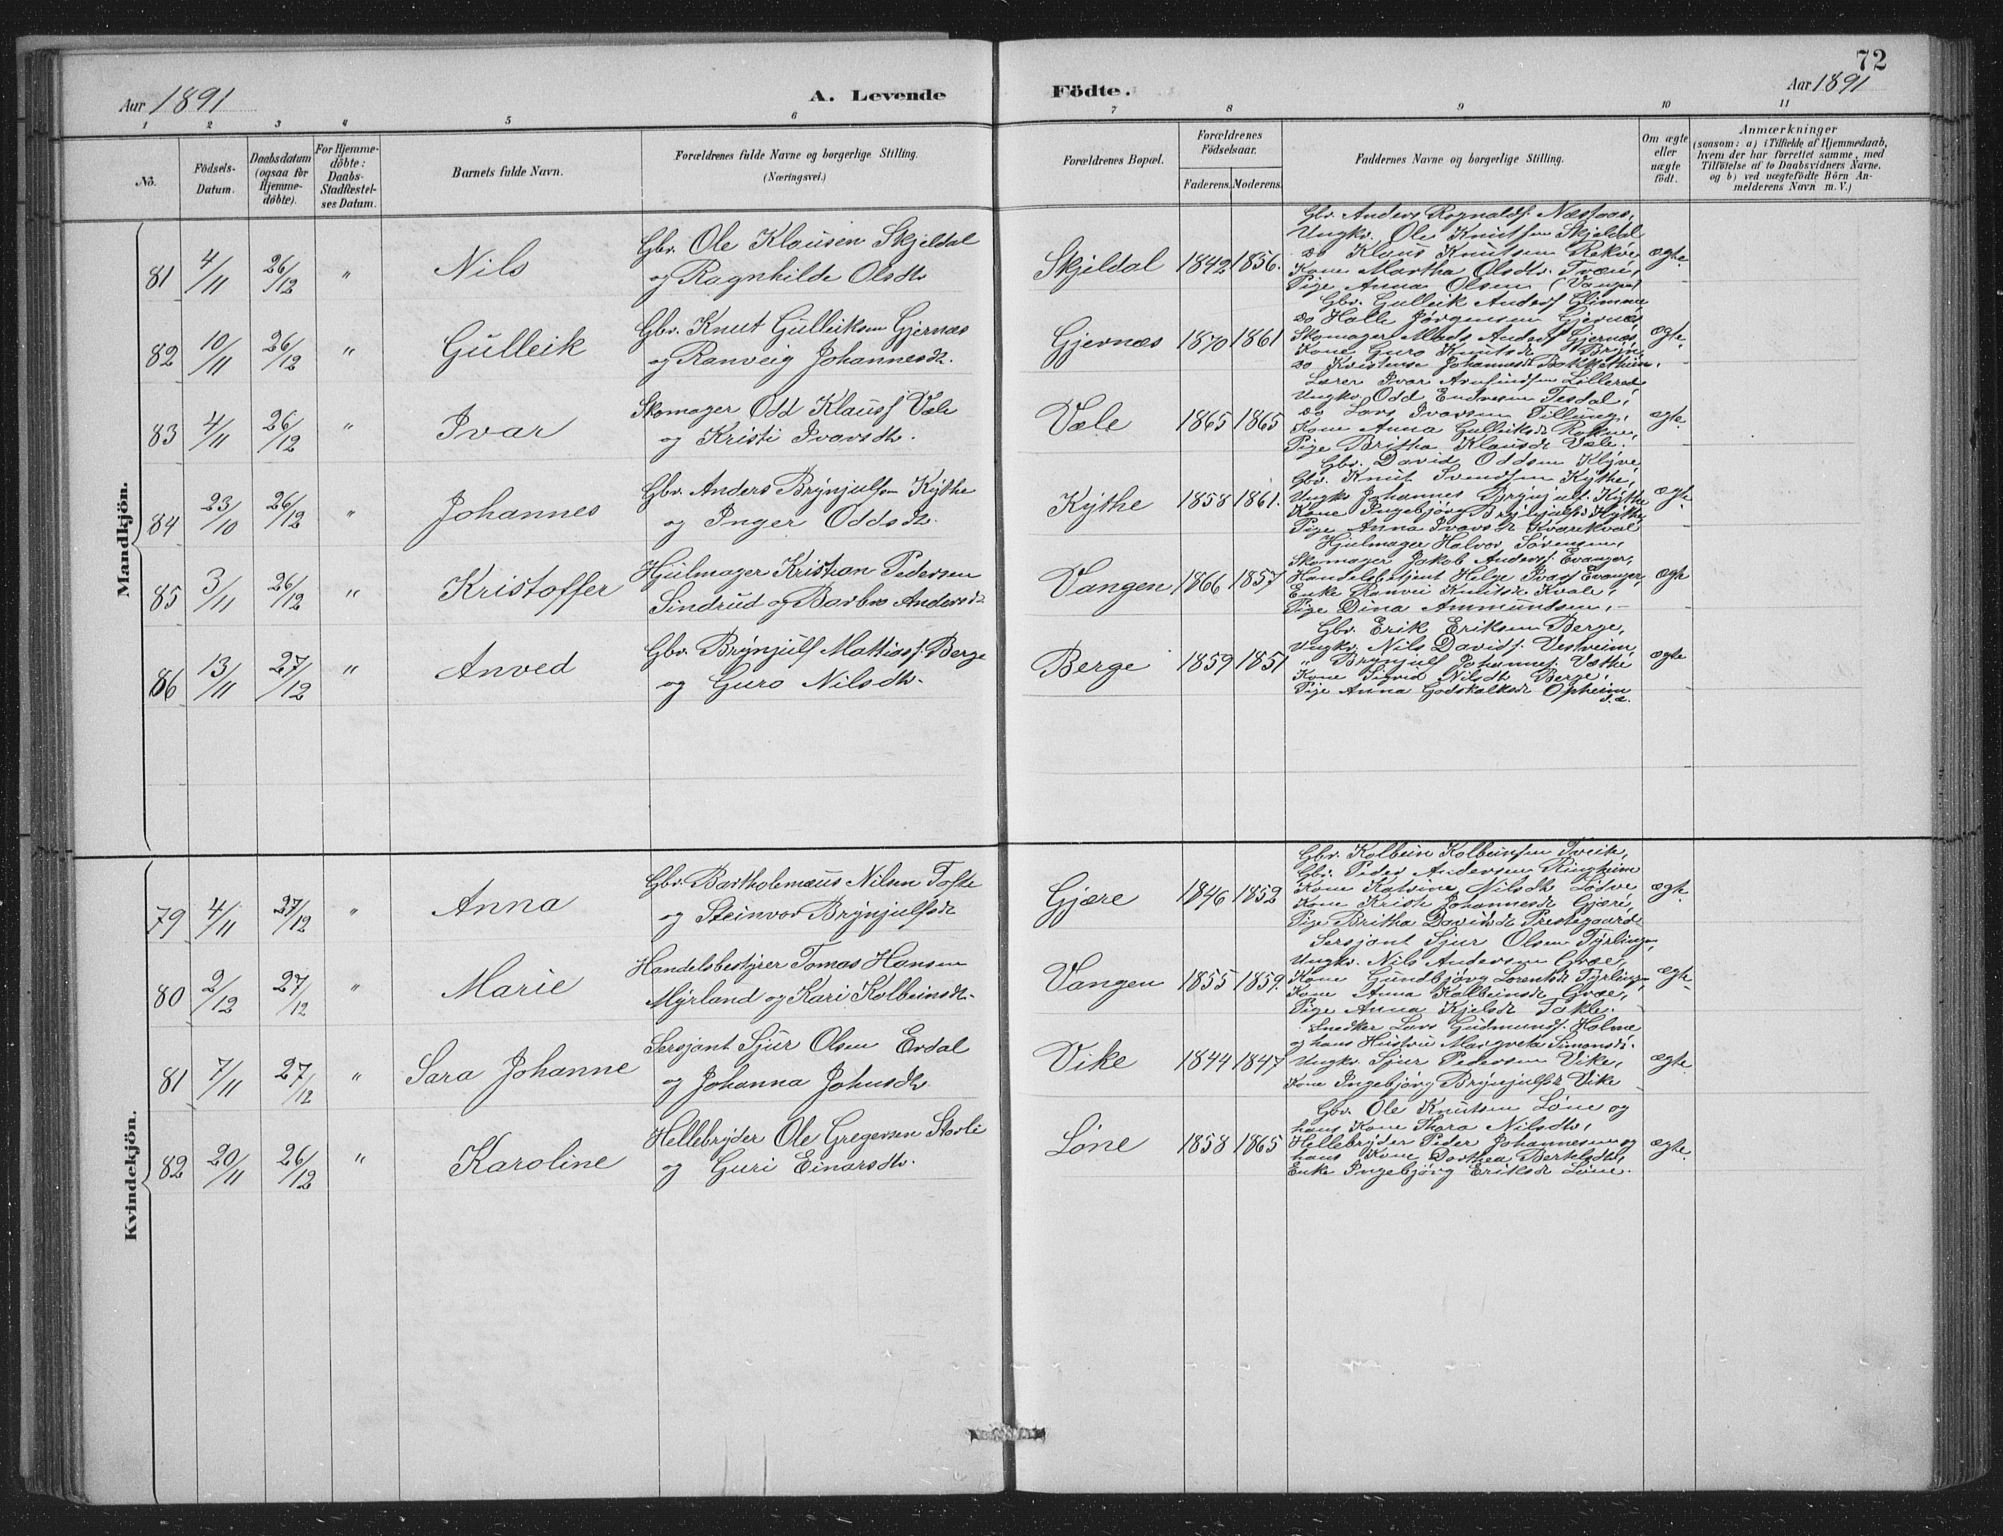 72
Aar 1891
A. Levende
Födte.
Aar 1891
1 2 3 4 5 6 7 8 9 10 11
No.
Födsels-Datum.
Daabsdatum (ogsaa for Hjemmedøbte).
For Hjemmedöbte: Daabs-Stadfæstelses Datum.
Barnets fulde Navn.
Forældrenes fulde Navne og borgerlige Stilling.
(Næringsvei.)
Forældrenes Bopæl.
Forældrenes Födselsaar.
Faderens. Moderens.
Faddernes Navne og borgerlige Stilling.
Om ægte eller uægte födt.
Anmærkninger
(saasom: a) i Tilfælde af Hjemmedaab, hvem der har forrettet samme, med Tilföielse af to Daabsvidners Navne. og b) ved uægtefödte Börn Anmelderens Navn m. V.)
Mandkjön.
81 4/11 26/12 " Nils
Gbr. Ole Klausen Skjeldal
og Ragnhilde Olsdtr.
Skjeldal 1842 1856.
Gbr. Anders Rognaldf. Næsfaas,
Ungkr. Ole Knutsen Skjeldal
do Klaus Knutsen Rekve,
Kone Martha Olsdtr.
Pige Anna Olsen (Vangen)
ægte
82 10/11 26/12 " Gulleik
Gbr. Knut Gulleiksen Gjernæs
og Ranveig Johannesdt.
Gjernæs 1870 1861
Gbr. Gulleik Andersf Glimme
do Halle Jørgensen Gjernæs,
Skomager Mads Andersf Gjernæs,
Kone Guro Knutsdt Bryn,
do Kristense Johannesdt
ægte.
83 4/11 26/12 " Ivar
Skomager Odd Klausf Væle
og Kristi Ivarsdtr.
Væle 1865 1865
Lærer Ivar Arnfindsen
Ungkr. Odd Endresen Tesdal,
do Lars Ivarsen Tillung,
Kone Anna Gulleiksdt Rokne,
Pige Britha Klausdt Væle.
ægte
84 23/10 26/12 " Johannes
Gbr. Anders Brynjulfsen Kythe
og Inger Oddsdt.
Kythe 1858 1861.
Gbr. David Oddsen Klyve,
Gbr. Knut Svendsen Kythe,
Ungkr Johannes Brynjulf. Kythe,
Kone Ingebjørg Brynjulfsd Kythe,
Pige Anna Ivarsdt Kvarekval
ægte.
85 3/11 26/12 " Kristoffer
Hjulmager Kristian Pedersen
Sindrud og Barbro Andersdt
Vangen 1866 1857
Hjulmager Halvor Sørensen,
Skomager Jakob Andersf. Evanger,
Handelsbetjent Helge Ivarsf Evanger,
Enke Ranvei Knutsdt Kvale,
Pige Dina Ammundsen,
ægte
86 13/11 27/12 " Anved
Gbr. Brynjulf Mattiasf. Berge
og Guro Nilsdtr.
Berge 1859 1851
Gbr. Erik Eriksen Berge,
Ungkr. Nils Davidf. Vestreim,
" Brynjulf Johannesf. Væthe
Kone Sigvid Nilsdtr Berge,
Pige Anna Godskalksdt Opheim
ægte
Kvindekjön.
79 4/11 27/12 " Anna
Gbr. Bartholomæus Nilsen Tofte
og Steinvor Brynjulfsdt
Gjære 1846 1852
Gbr. Kolbein Kolbeinsen Tveite,
Gbr. Peder Andersen Ringheim
Kone Katrine Nilsdt Lødve
Kone Kristi Johannesdt Gjære,
Pige Britha Davidsdt Prestegaarde
ægte.
80 2/12 27/12 " Marie
Handelsbestyrer Tomas Hansen
Myrland og Kari Kolbeinsdt.
Vangen 1855 1859.
Sersjant Sjur Olsen Tyrlingen,
Ungkr. Nils Andersen Græe,
Kone Gundbjørg Lorentsdt Tyrlingen,
Kone Anna Kolbeinsdt Græe,
Pige Anna Kjelsdt Takle.
ægte
81 7/11 27/12 " Sara Johanne
Sersjant Sjur Olsen Erdal
og Johanna Johnsdtr.
Vike 1844 1847
Snedker Lars Gudmundf. Holme
og hans Hustru Margrete Simonsdt.
Ungkr. Sjur Pedersen Vike,
Kone Ingebjørg Brynjulfsdt Vike
ægte
82 20/11 26/12 " Karoline
Hellebryder Ole Gregersen Storli
og Guri Einarsdtr.
Løne 1858 1865
Gbr. Ole Knutsen Løne og
hans Kone Thora Nilsdtr,
Hellebryder Peder Johannesen og
hans Kone Dorthea Bertelsdtr,
Enke Ingebjørg Eriksdt Løne.
ægte.